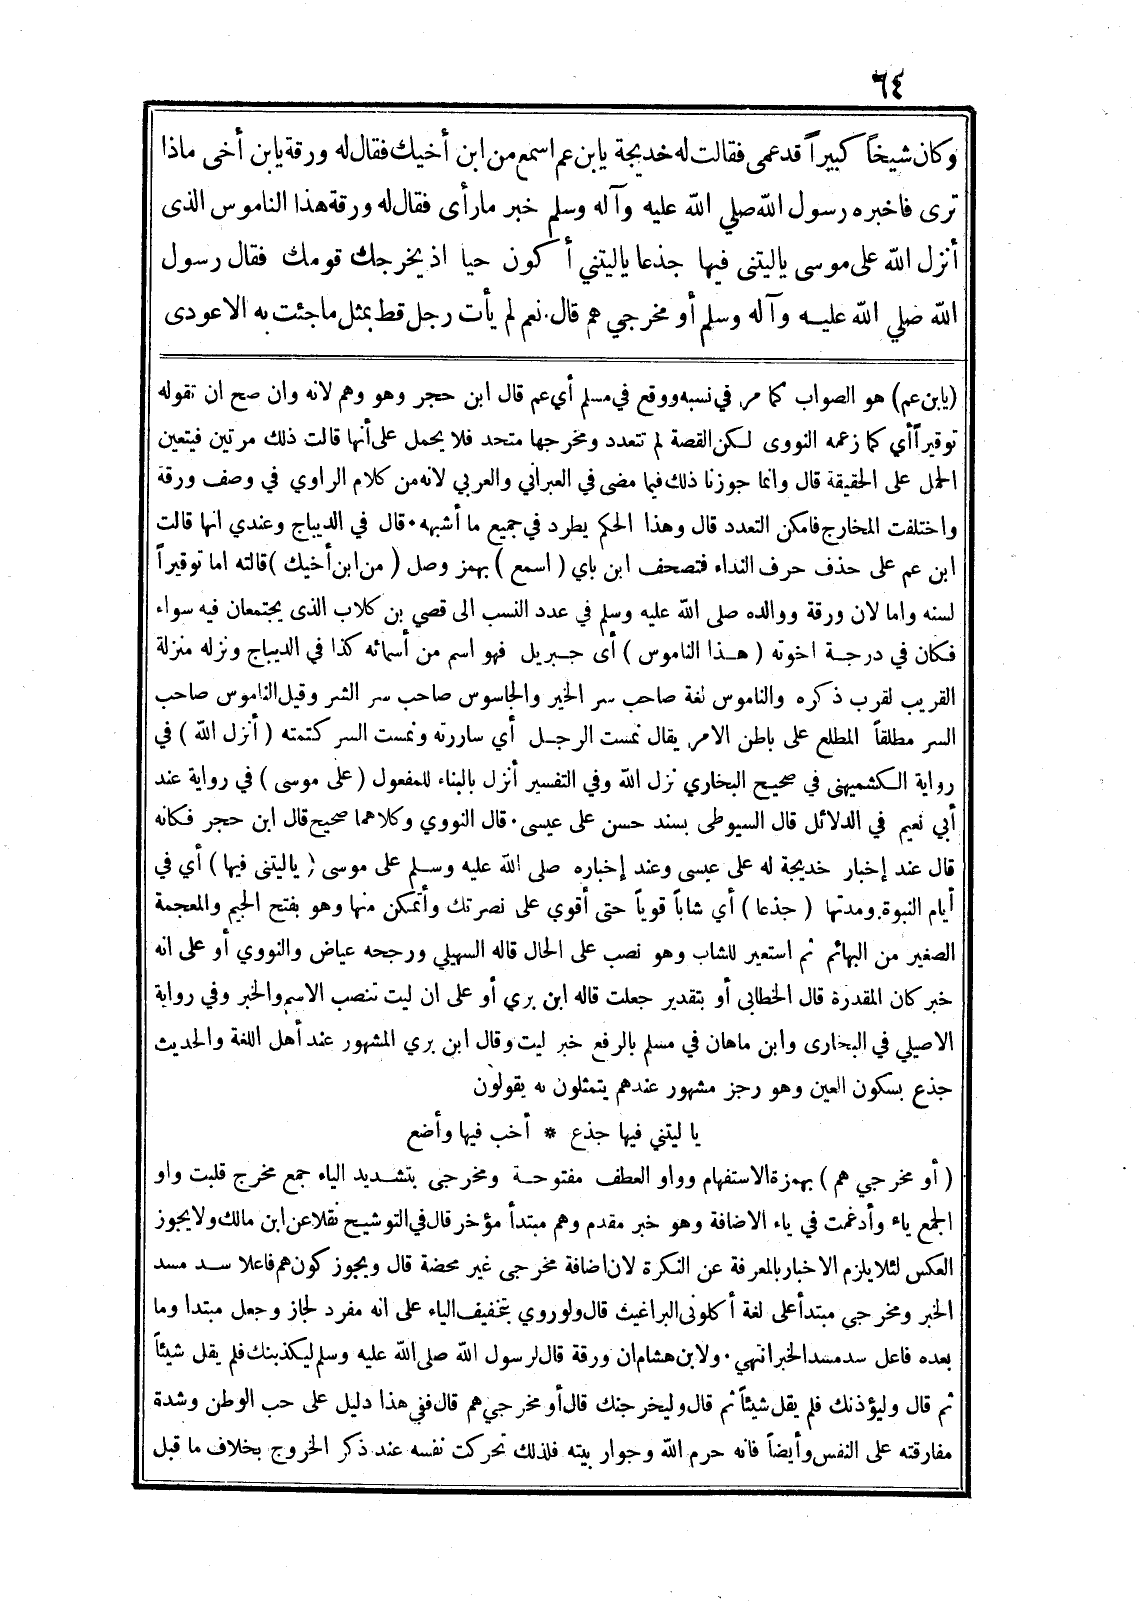 ٦٤
وكان شيخاً كبيراً قد عمى فقالت له خديجة يابن عم اسمع من ابن أخيك فقال له ورقة يابن أخى ماذا
ترى فاخبره رسول الله صلي الله عليه وآله وسلم خبر مارأى فقال له ورقة هذا الناموس الذى
أنزل الله على موسى ياليتنى فيها جذعا ياليتني أكون حيا اذ يخرجك قومك فقال رسول
الله صلي الله عليه وآله وسلم أو مخرجي هم قال. نعم لم يأت رجل قط بمثل ماجئت به الا عودى
(يابن عم) هو الصواب كما مر في نسبه ووقع في مسلم أي عم قال ابن حجر وهو وهم لانه وان صح ان تقوله
توقيراً أي كما زعمه النووى لكن القصة لم تتعدد ومخرجها متحد فلا يحمل على أنها قالت ذلك مرتين فيتعين
الحمل على الحقيقة قال وانما جوزنا ذلك فيما مضى في العبراني والعربي لانه من كلام الراوي في وصف ورقة
واختلفت المخارج فامكن التعدد قال وهذا الحكم يطرد في جميع ما أشبهه . قال في الديباج وعندي انها قالت
ابن عم على حذف حرف النداء فتصحف ابن باي ( اسمع ) بهمز وصل ( من ابن أخيك ) قالته اما توقيراً
لسنه واما لان ورقة ووالده صلى الله عليه وسلم في عدد النسب الى قصي بن كلاب الذى يجتمعان فيه سواء
فكان في درجة اخوته ( هذا الناموس ) أى جبريل فهو اسم من أسمائه كذا في الديباج ونزله منزلة
القريب لقرب ذكره والناموس لغة صاحب سر الخير والجاسوس صاحب سر الشر وقيل الناموس صاحب
السر مطلقاً المطلع على باطن الامر يقال نمست الرجل أي ساررته ونمست السر كتمته ( أنزل الله ) في
رواية الكشميهنى في صحيح البخاري نزل الله وفي التفسير أنزل بالبناء للمفعول ( على موسى ) في رواية عند
أبي نعيم في الدلائل قال السيوطى بسند حسن على عيسى . قال النووي وكلاهما صحيح قال ابن حجر فكانه
قال عند إخبار خديجة له على عيسى وعند إخباره صلى الله عليه وسلم على موسى ( ياليتنى فيها ) أي في
أيام النبوة ومدتها ( جذعا ) أي شاباً قوياً حتى أقوي على نصرتك وأتمكن منها وهو بفتح الجيم والمعجمة
الصغير من البهائم ثم استعير للشاب وهو نصب على الحال قاله السهيلي ورجحه عياض والنووي أو على انه
خبر كان المقدرة قال الخطابى أو بتقدير جعلت قاله ابن بري أو على ان ليت تنصب الاسم والخبر وفي رواية
الاصيلي في البخارى وابن ماهان في مسلم بالرفع خبر ليت وقال ابن بري المشهور عند أهل اللغة والحديث
جذع بسكون العين وهو رجز مشهور عندهم يتمثلون به يقولون
يا ليتني فيها جذع * أخب فيها وأضع
( أو مخرجي هم ) بهمزة الاستفهام وواو العطف مفتوحة ومخرجى بتشديد الياء جمع مخرج قلبت واو
الجمع ياء وأدغمت في ياء الاضافة وهو خبر مقدم وهم مبتدأ مؤخر قال في التوشيح نقلا عن ابن مالك ولا يجوز
العكس لئلا يلزم الاخبار بالمعرفة عن النكرة لان اضافة مخرجى غير محضة قال ويجوز كون هم فاعلا سد مسد
الخبر ومخرجي مبتدأ على لغة أكلونى البراغيث قال ولو روي بتخفيف الياء على انه مفرد لجاز وجعل مبتدا وما
بعده فاعل سد مسد الخبر انتهي . ولابن هشام ان ورقة قال لرسول الله صلى الله عليه وسلم ليكذبنك فلم يقل شيئاً
ثم قال وليؤذنك فلم يقل شيئاً ثم قال وليخرجنك قال أو مخرجي هم قال ففي هذا دليل على حب الوطن وشدة
مفارقته على النفس وأيضاً فانه حرم الله وجوار بيته فلذلك تحركت نفسه عند ذكر الخروج بخلاف ما قبل